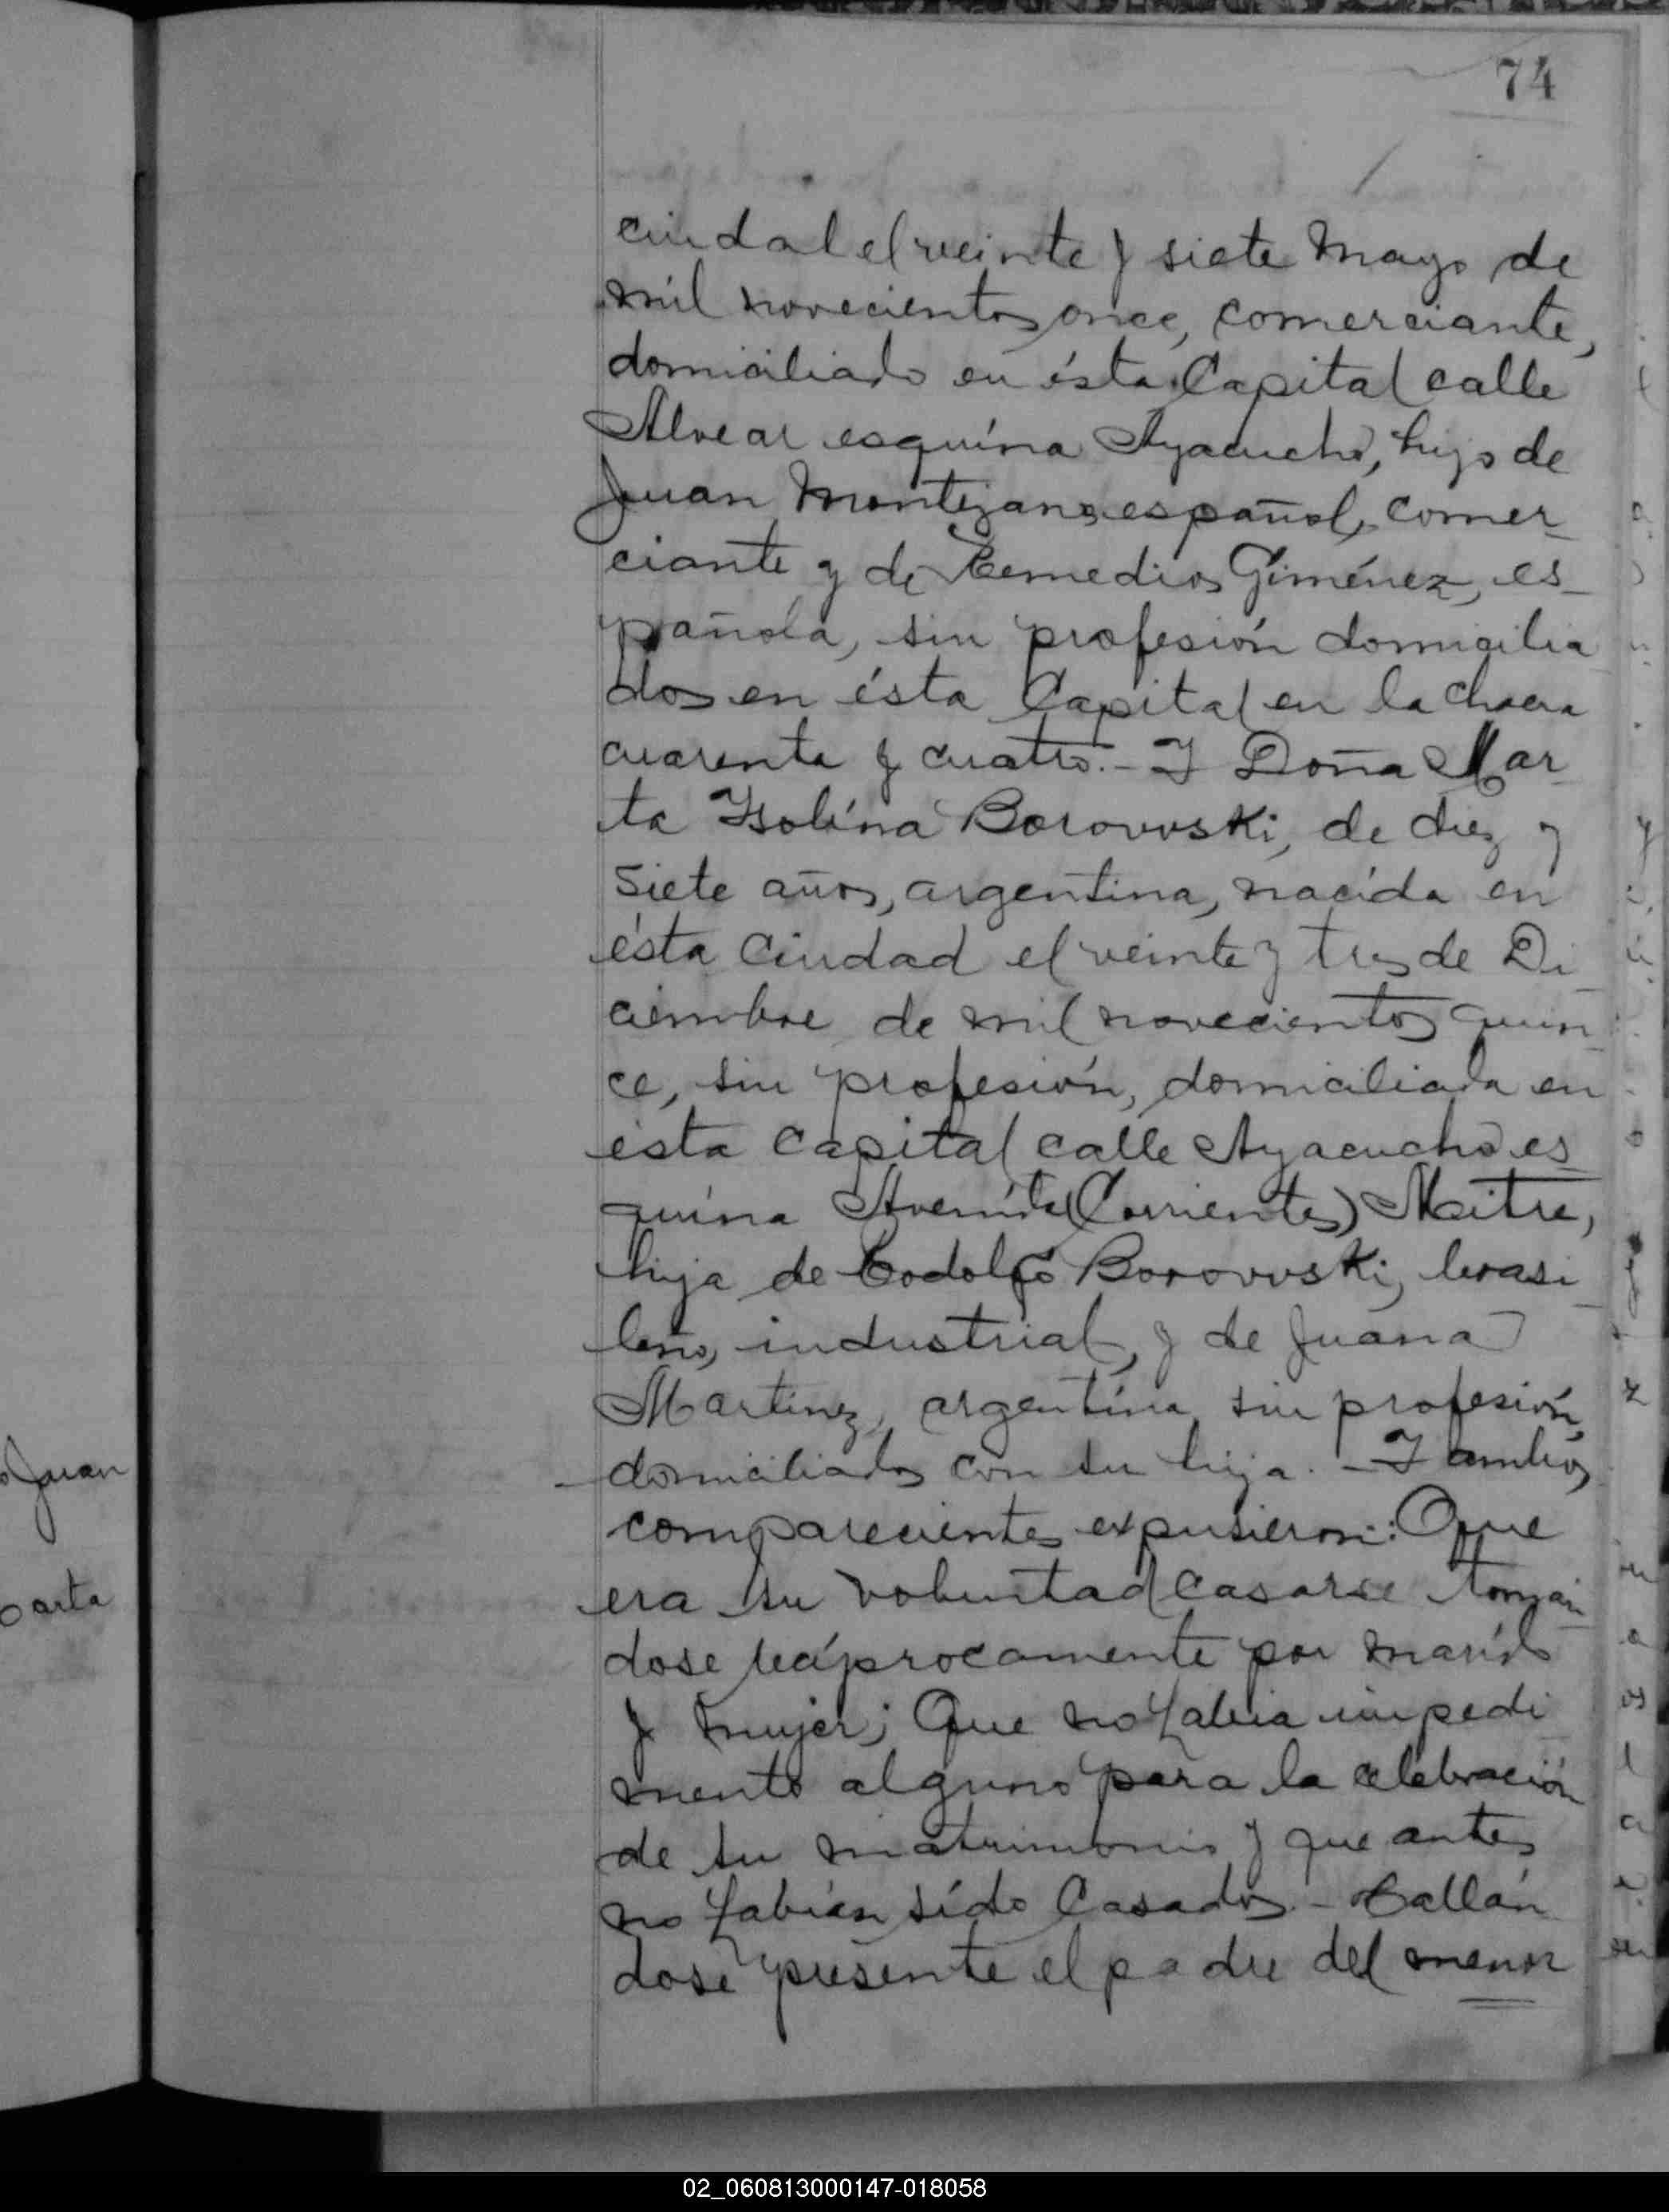 74
ciudad el veinte y siete Mayo de
mil novecientos once, comerciante,
domiciliado en ésta Capital calle
Alvear esquína Ayacucho, hijo de
Juan Montejano, español, comer_
ciante y de Remedios Giménez, es_
pañola, sin profesión domicilia
dos en ésta Capital en la chacra
cuarenta y cuatro.- Y Doña Mar
ta Ysolína Borovvski, de diez y
siete años, argentina, nacída en
ésta Ciudad el veinte y tres de Di_
ciembre de mil novecientos quin_
ce, sin profesión, domiciliada en
ésta Capital calle Ayacucho es_
quína Avenída (Corrientes) Mitre,
hija de Rodolfo Borovvski, brasi_
leño, industrial, y de Juana
Martínez, argentína, sin profesión,
domiciliados con su hija. - Y ambos
comparecientes expusieron: Que
era su voluntad casarse toman_
dose recíprocamente por marído
y mujer; Que no habia impedi
mento alguno para la celebración
de su matrimonio y que antes
no habían sído Casados. - Hallán
dose presente el padre del menor
Juan
arta
02_060813000147-018058